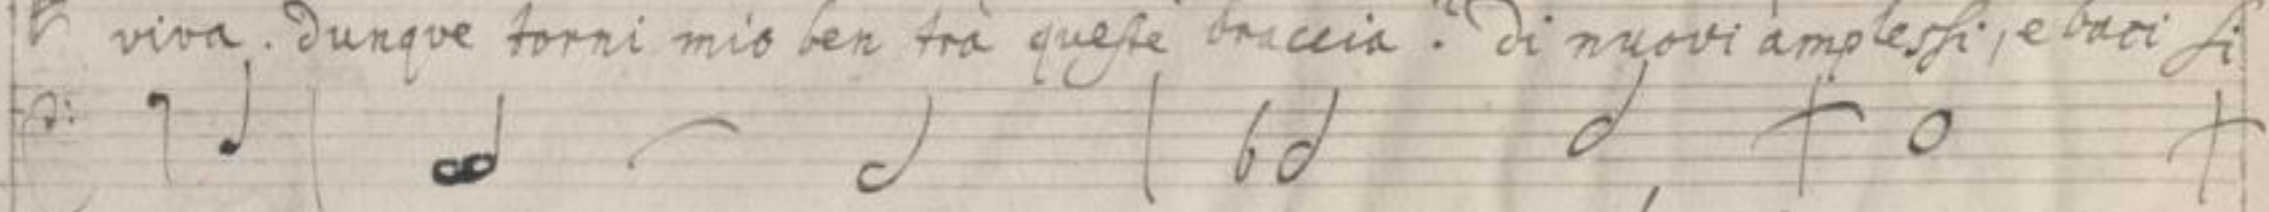 viva. Dunque torni mio ben trà queste braccia? Di nuovi amplessi, e baci si